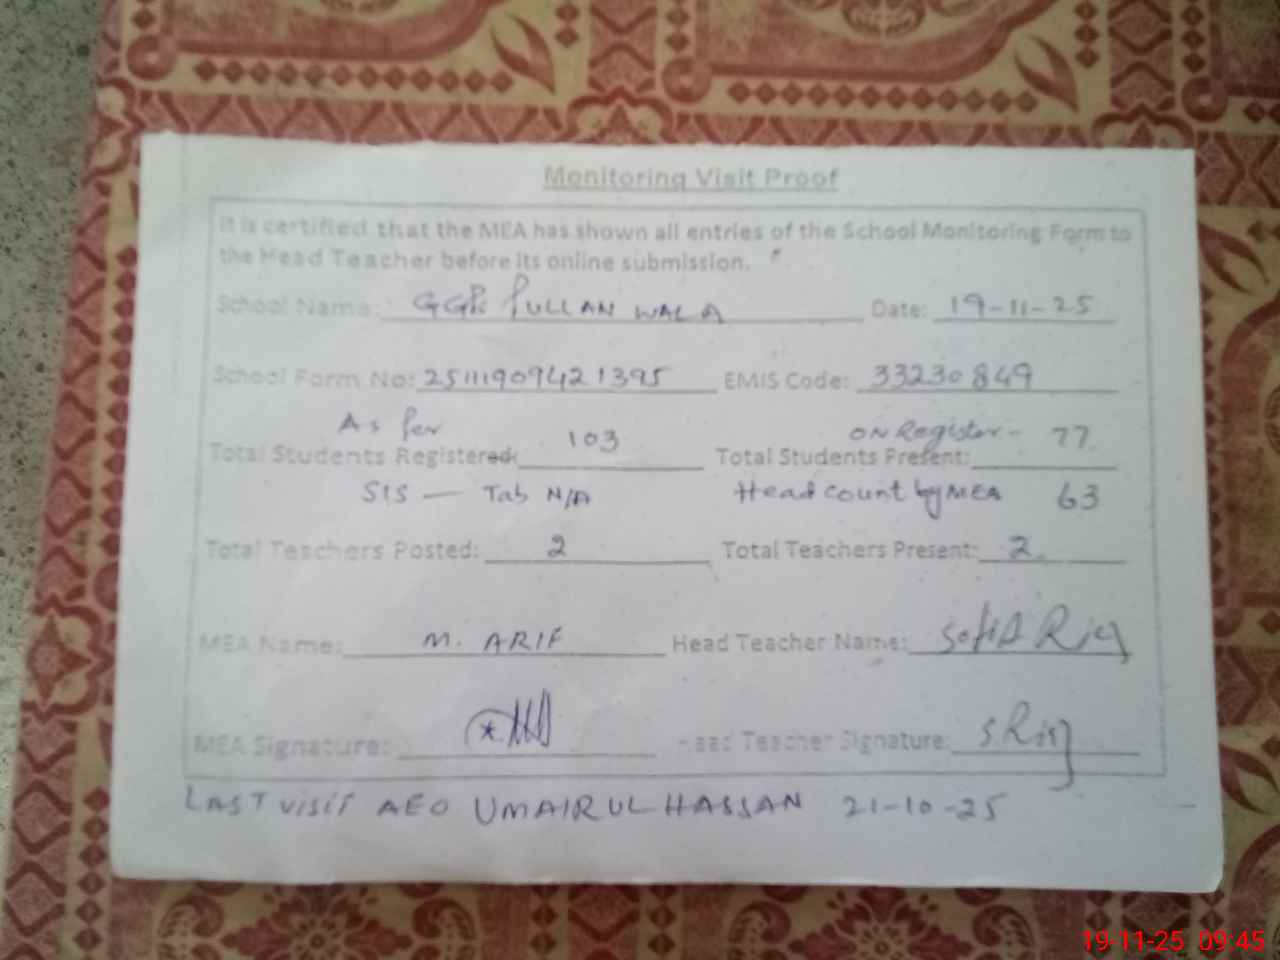 Monitoring Visit Proof
It is certified that the MEA has shown all entries of the School Monitoring Form to
the Head Teacher before its online submission.
School Name: GGPS PULLAN WALA Date: 19-11-25
School Form No: 25111909421395 EMIS Code: 33230849
As Per ON Register - 77
Total Students Registered: 103 Total Students Present:
SIS — Tab N/A Head count by MEA 63
Total Teachers Posted: 2 Total Teachers Present: 2
MEA Name: M. ARIF Head Teacher Name: Sofia
MEA Signature: Head Teacher Signature:
LAST VISIT AEO UMAIR UL HASSAN 21-10-25
19-11-25 09:45